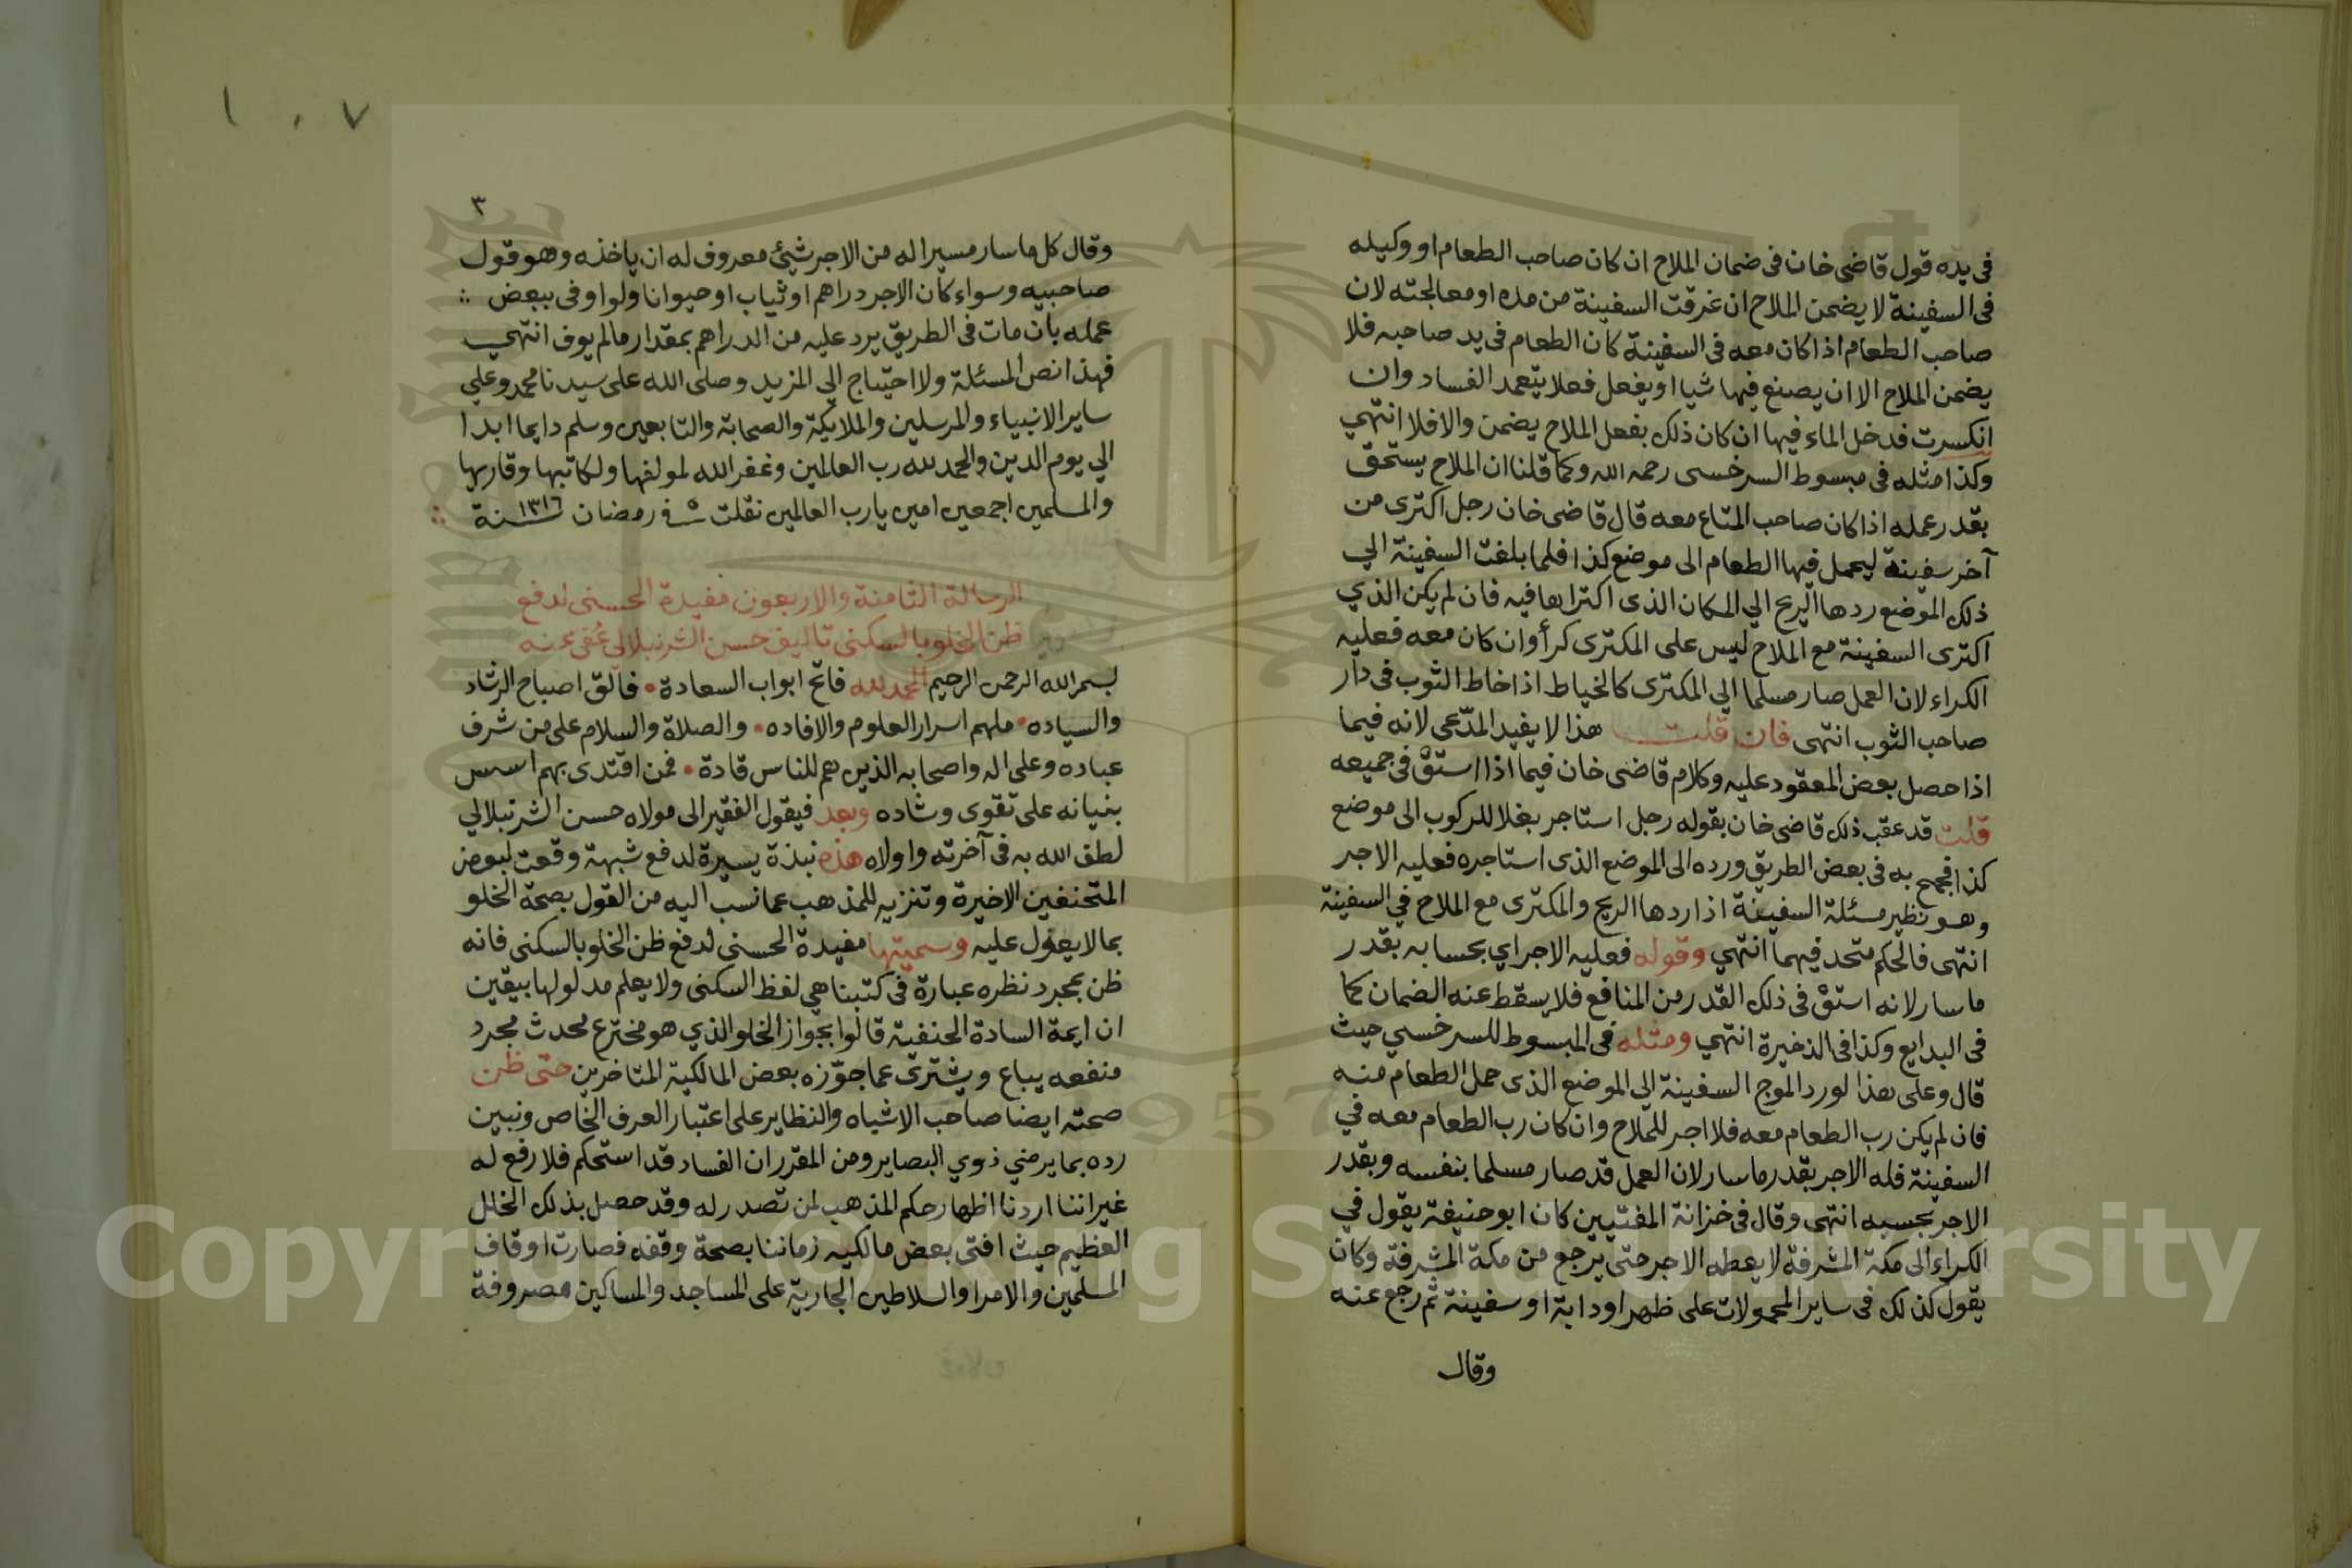 في يده قول قاضى خان فى ضمان الملاح ان كان صاحب الطعام او وكيله
فى السفينة لا يضمن الملاح ان غرقت السفينة من مده او معالجته لان
صاحب الطعام اذا كان معه فى السفينة كان الطعام فى يد صاحبه فلا
يضمن الملاح الا ان يصنع فيها شيا او يفعل فعلا يتعمد الفساد وان
انكسرت فدخل الماء فيها ان كان ذلك بفعل الملاح يضمن والا فلا انتهي
وكذا مثله فى مبسوط السرخسى رحمه الله وكما قلنا ان الملاح يستحق
بقدر عمله اذا كان صاحب المتاع معه قال قاضى خان رجل اكترى من
آخر سفينة ليحمل فيها الطعام الى موضع كذا فلما بلغت السفينة الي
ذلك الموضع ردها الريح الي المكان الذى اكتراها فيه فان لم يكن الذي
اكترى السفينة مع الملاح ليس على المكترى كرأ وان كان معه فعليه
الكراء لان العمل صار مسلما الي المكترى كالخياط اذا خاط الثوب فى دار
صاحب الثوب انتهى فان قلت هذا لا يفيد المدّعى لانه فيما
اذا حصل بعض المعقود عليه وكلام قاضى خان فيما اذا استوْفى جميعه
قلت قد عقب ذلك قاضى خان بقوله رجل استاجر بغلا للركوب الى موضع
كذا فجمح به فى بعض الطريق ورده الى الموضع الذى استاجره فعليه الاجر
وهو نظير مسئلة السفينة اذا ردها الريح والمكترى مع الملاح في السفينة
انتهى فالحكم متحد فيهما انتهي وقوله فعليه الاجر اي بحسابه بقدر
ما سار لانه استوْفى ذلك القدر من المنافع فلا يسقط عنه الضمان كما
فى البدايع وكذا فى الذخيرة انتهي ومثله فى المبسوط للسرخسي حيث
قال وعلى هذا لو رد الموج السفينة الي الموضع الذى حمل الطعام منه
فان لم يكن رب الطعام معه فلا اجر للملاح وان كان رب الطعام معه في
السفينة فله الاجر بقدر ما سار لان العمل قد صار مسلما بنفسه وبقدر
الاجر بحسبه انتهى وقال فى خزانة المفتيين كان ابو حنيفة يقول في
الكراء الى مكة المشرفة لا يعطه الاجر حتى يرجع من مكة المشرفة وكان
يقول كذلك فى ساير المحمولات على ظهر او دابة او سفينة ثم رجع عنه
وقال
١٠٧
٣
وقال كل ما سار مسيرا له من الاجر شيئ معروف له ان ياخذه وهو قول
صاحبيه وسواء كان الاجر دراهم او ثياب او حيوانا ولو اوفى ببعض
عمله بان مات فى الطريق يرد عليه من الدراهم بمقدار مالم يوف انتهي
فهذا نص المسئلة ولا احتياج الي المزيد وصلى الله على سيدنا محمد وعلي
ساير الانبياء والمرسلين والملايكة والصحابة والتابعين وسلم دايما ابدا
الي يوم الدين والحمد لله رب العالمين وغفر الله لمولفها ولكاتبها وقاريها
والمسلمين اجمعين امين يارب العالمين نقلت ٥ فى رمضان سنة ١٣١٦
الرسالة الثامنة والاربعون مفيدة الحسنى لدفع
ظن الخلو بالسكنى تاليف حسن الشرنبلالي عُفى عنه
بسم الله الرحمن الرحيم الحمد لله فاتح ابواب السعادة • فالق اصباح الرشاد
والسياده • ملهم اسرار العلوم والافاده • والصلاة والسلام على من شرف
عباده وعلى اله واصحابه الذين هم للناس قادة • فمن اقتدى بهم اسس
بنيانه على تقوى وشاده وبعد فيقول الفقير الى مولاه حسن الشرنبلالي
لطف الله به فى آخرته واولاه هذه نبذة يسيرة لدفع شبهة وقعت لبعض
المتحنفين الاخيرة وتنزيه للمذهب عما نسب اليه من القول بصحة الخلو
بما لا يعول عليه وسميتها مفيدة الحسنى لدفع ظن الخلو بالسكنى فانه
ظن بمجرد نظره عبارة فى كتبنا هي لفظ السكنى ولا يعلم مدلولها بيقين
ان ايمة السادة الحنفية قالوا بجواز الخلو الذي هو مخترع محدث مجرد
منفعه يباع ويشترى عما جوّزه بعض المالكية المتاخرين حتى ظن
صحته ايضا صاحب الاشباه والنظاير على اعتبار العرف الخاص ونبين
رده بما يرضي ذوي البصاير ومن المقرر ان الفساد قد استحكم فلا رفع له
غير اننا اردنا اظهار حكم المذهب لمن تصدر له وقد حصل بذلك الخلل
العظيم حيث افتى بعض مالكيه زماننا بصحة وقفه فصارت اوقاف
المسلمين والامرا والسلاطين الجارية على المساجد والمساكين مصروفة
Copyright © King Saud University
1957